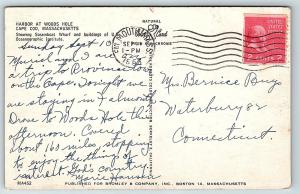 HARBOR AT WOODS HOLE
CAPE COD, MASSACHUSETTS
Showing Steamboat Wharf and buildings of
Oceanographic Institute.
NATURAL
Sunday Sept 13
Muriel and I are on
a trip to Provincetown
on the Cape. Tonight we
are staying in Falmouth.
Drove to Woods Hole this
afternoon. Covered
about 160 miles, stopping
to enjoy the things of
God's country.
Marie Harrison
FALMOUTH
SEP
1 - PM
MASS.
2 CENTS 2
Mrs. Bernice
Waterbury 82
Connecticut.
MA452
PUBLISHED FOR BROMLEY & COMPANY, INC., BOSTON 14, MASSACHUSETTS